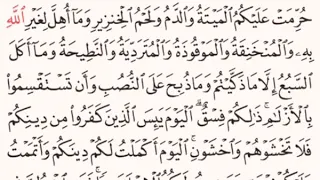 حُرِّمَتْ عَلَيْكُمُ الْمَيْتَةُ وَالدَّمُ وَلَحْمُ الْخِنزِيرِ وَمَا أُهِلَّ لِغَيْرِ اللَّهِ
بِهِ وَالْمُنْخَنِقَةُ وَالْمَوْقُوذَةُ وَالْمُتَرَدِّيَةُ وَالنَّطِيحَةُ وَمَا أَكَلَ
السَّبُعُ إِلَّا مَا ذَكَّيْتُمْ وَمَا ذُبِحَ عَلَى النُّصُبِ وَأَن تَسْتَقْسِمُوا
بِالْأَزْلَامِ ۚ ذَٰلِكُمْ فِسْقٌ ۗ الْيَوْمَ يَئِسَ الَّذِينَ كَفَرُوا مِن دِينِكُمْ
فَلَا تَخْشَوْهُمْ وَاخْشَوْنِ ۚ الْيَوْمَ أَكْمَلْتُ لَكُمْ دِينَكُمْ وَأَتْمَمْتُ